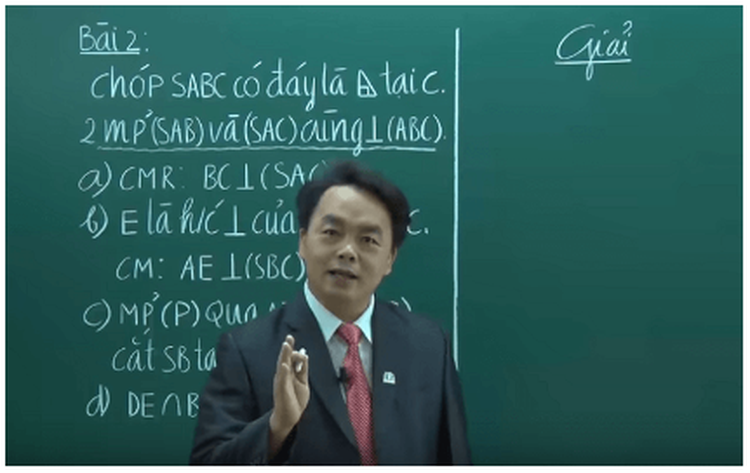 Bài 2:
Chóp SABC có đáy là ⊿ tại C.
2 mp'(SAB) và (SAC) cùng ⊥ (ABC).
a) CMR: BC ⊥ (SA
b) E là h/c ⊥ của C.
CM: AE ⊥ (SBC)
c) MP'(P) Qua
cắt SB tạ
d) DE ∩ B
Giải